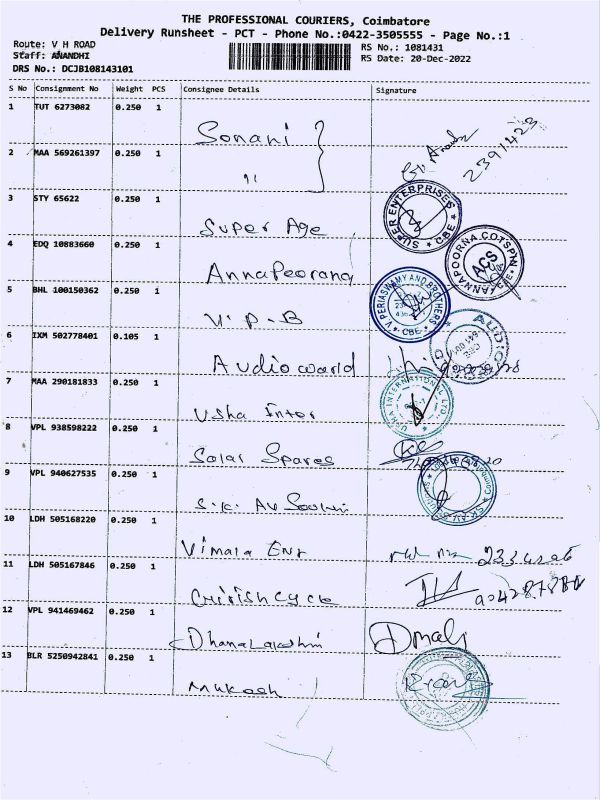 THE PROFESSIONAL COURIERS, Coimbatore
Delivery Runsheet - PCT - Phone No.:0422-3505555 - Page No.:1
Route: V H ROAD
RS No.: 1081431
Staff: ANANDHI
RS Date: 20-Dec-2022
DRS No.: DCJB108143101
S No Consignment No Weight PCS Consignee Details Signature
1 TUT 6273082 0.250 1 Sonani
2 MAA 569261397 0.250 1 "
3 STY 65622 0.250 1 Super Age
SUPER ENTERPRISES CBE
4 EDQ 10883660 0.250 1 Annapoorana
ANNAPOORNA COTSPN ACS CBE
5 BHL 100150362 0.250 1 V.P.B
V. PERIASWAMY AND BROTHERS CBE
6 IXM 502778401 0.105 1 Audio world
AUDIO
7 MAA 290181833 0.250 1 Usha Inter
USHA INTERNATIONAL LTD.
8 VPL 938598222 0.250 1 Solar Spares
9 VPL 940627535 0.250 1 S.K. AV
10 LDH 505168220 0.250 1 Vimala Enr
11 LDH 505167846 0.250 1 cycle
12 VPL 941469462 0.250 1 Dhanalakshmi
13 BLR 5250942841 0.250 1 Mukesh